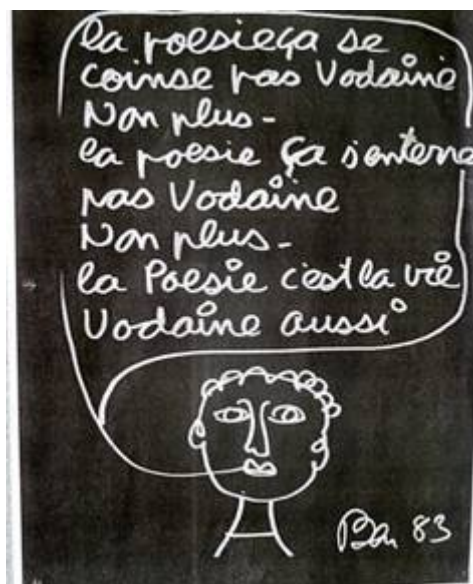 la poesie ça se
coinse pas Vodaine
Non plus -
la poesie ça s'enterre
pas Vodaine
Non plus -
la Poesie c'est la vie
Vodaine aussi
Ben 83